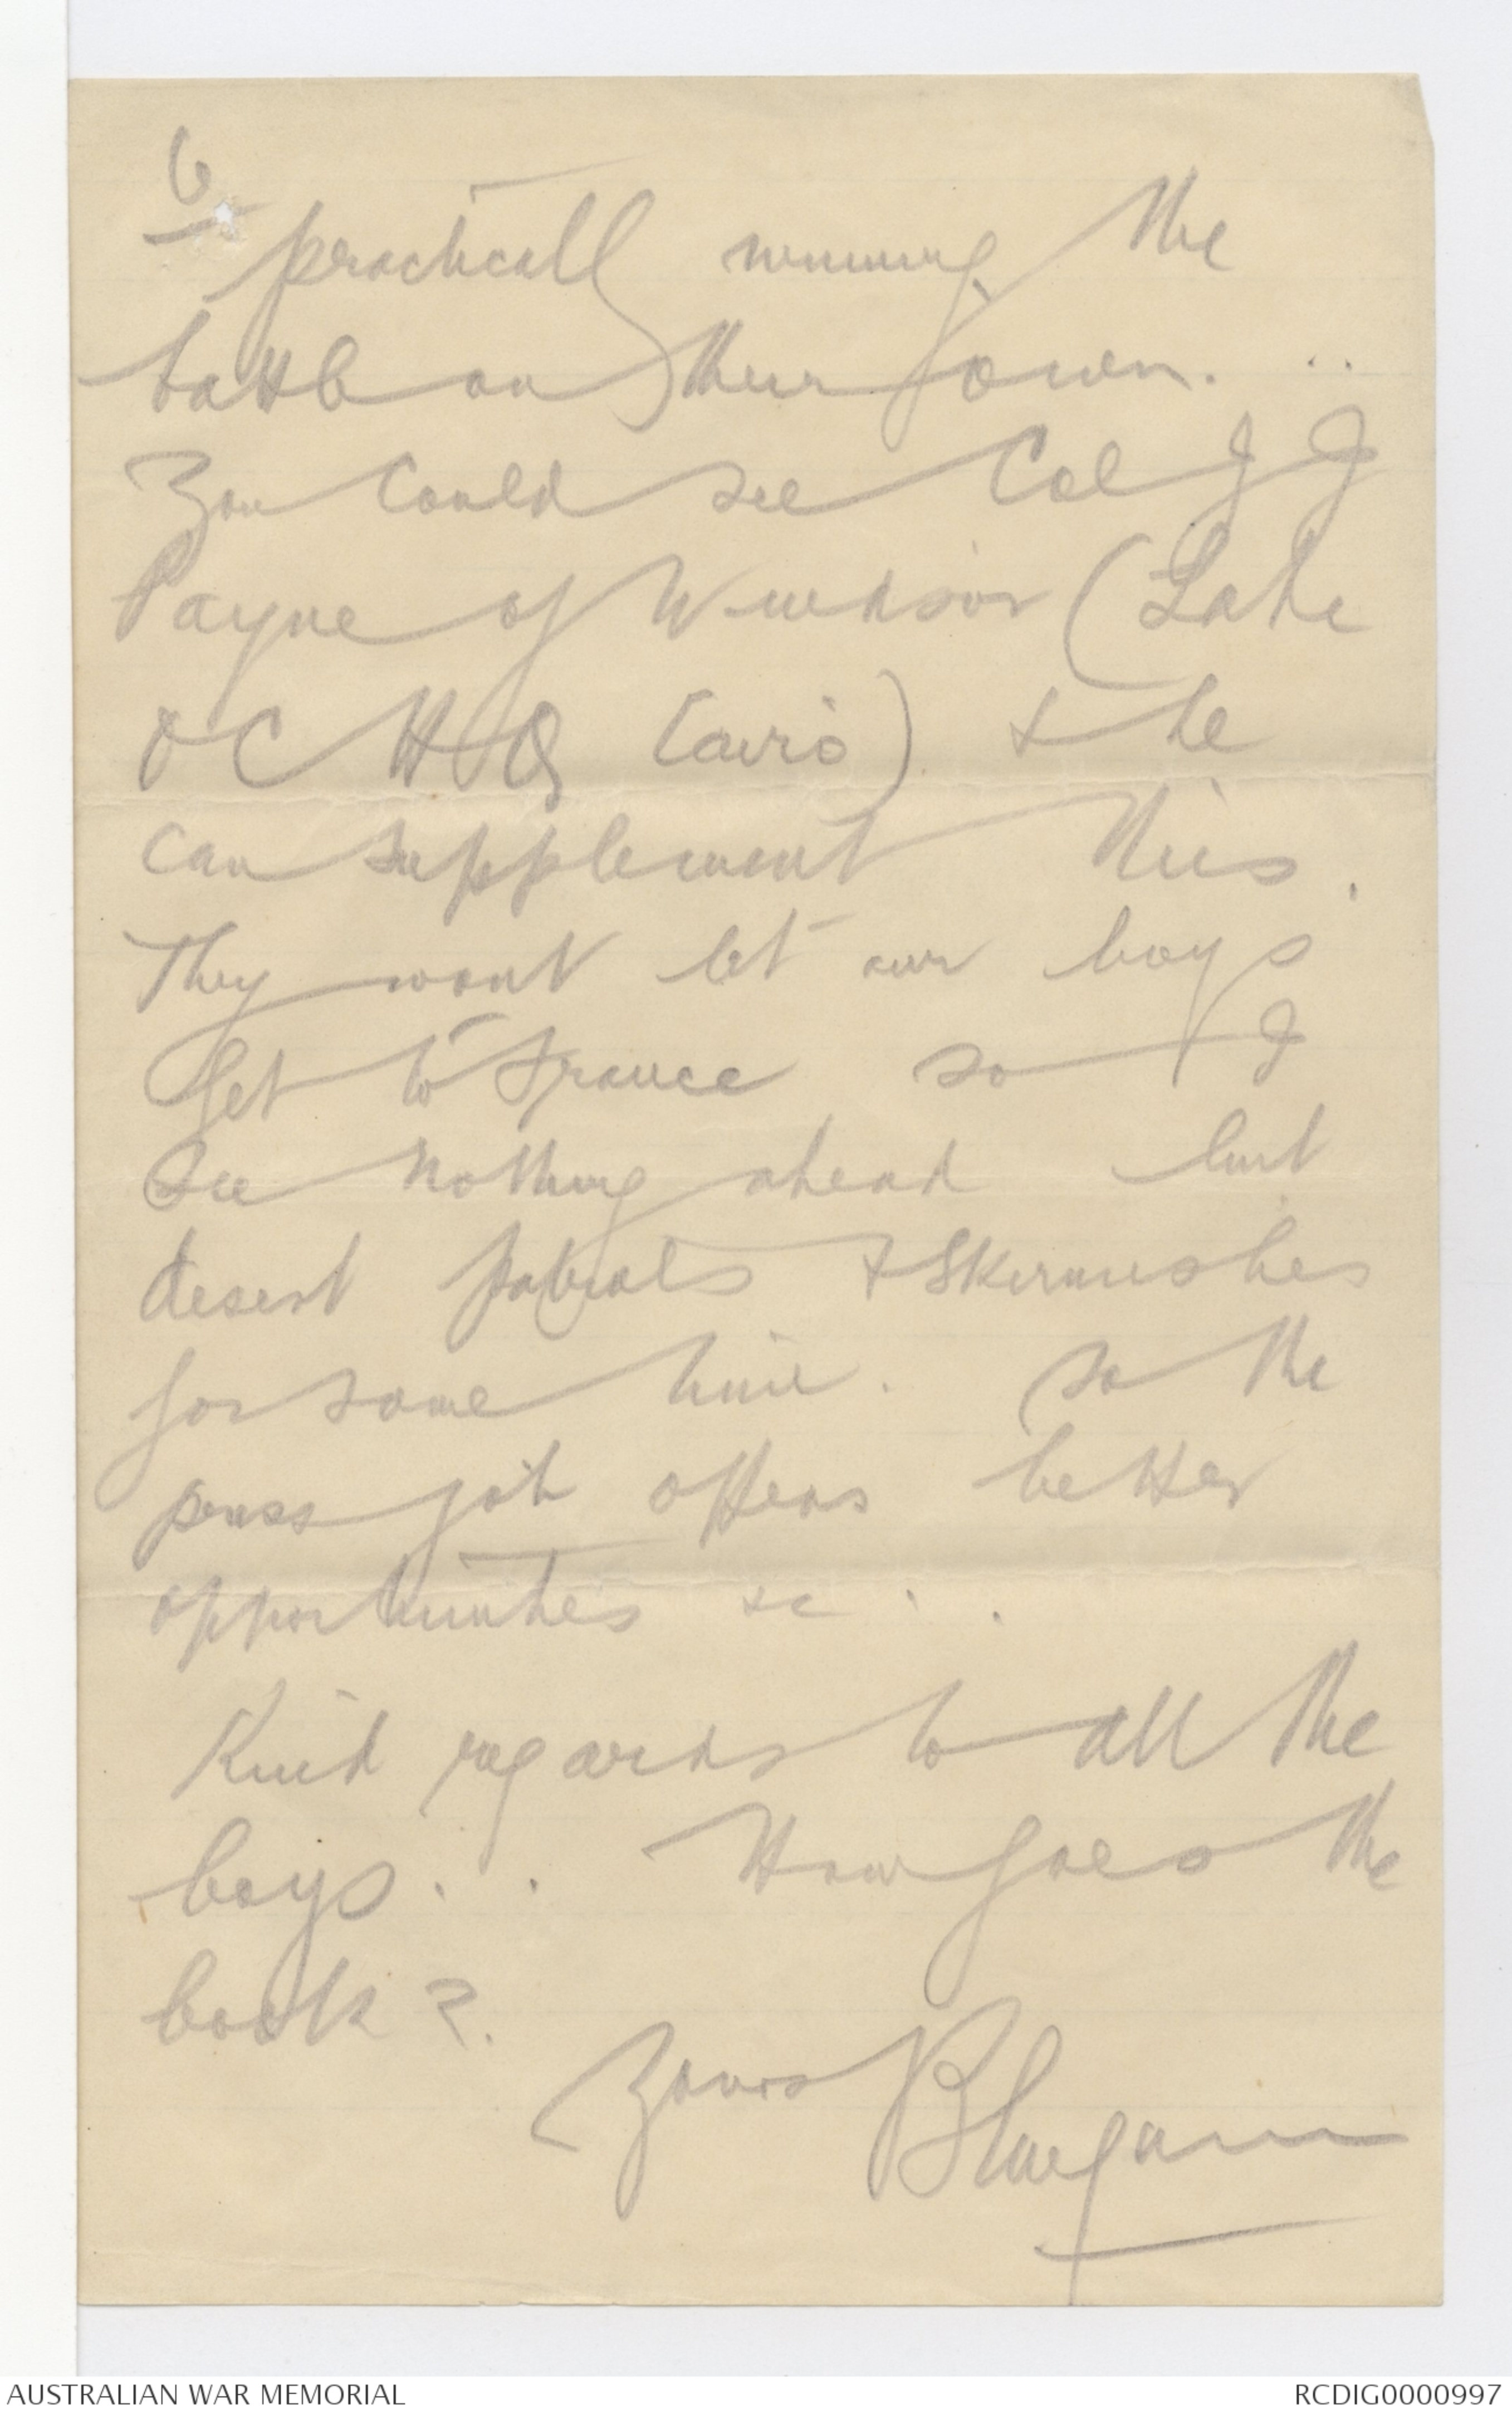 6
practically winning the
battle on their own. ..
You could see Col J J
Payne of Windsor (Late
O C H Q Cairo) & he
can supplement this.
They wont let our boys
get to France so I
see nothing ahead but
desert patrols & skirmishes
for some time. So the
press job offers better
opportunities &c . .
Kind regards to all the
boys. . How goes the
book?.
Yours
AUSTRALIAN WAR MEMORIAL
RCDIG0000997